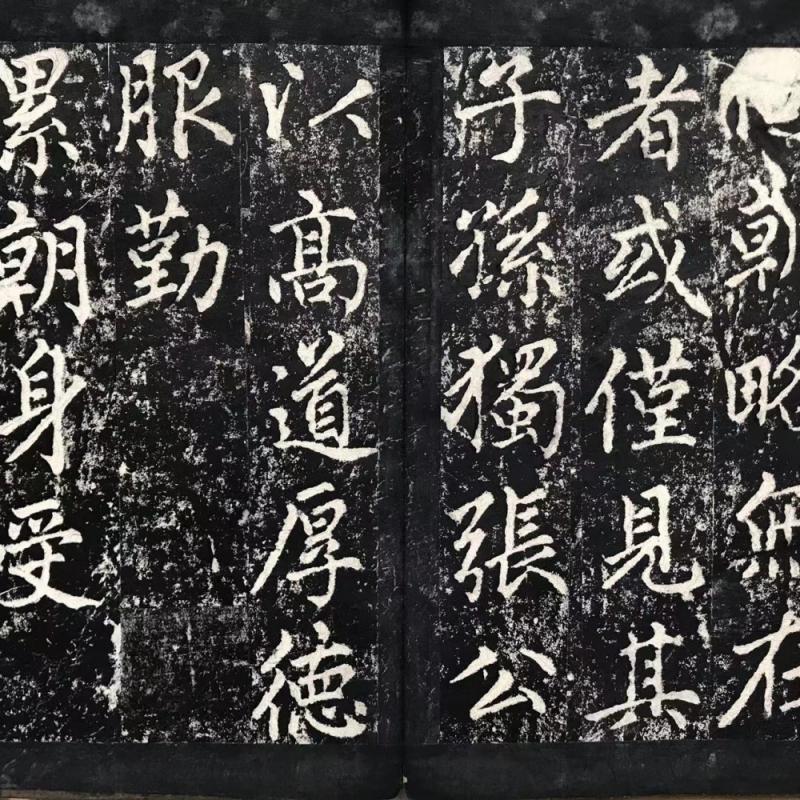 朝略無在
者或僅見其
子孫獨張公
以高道厚德
服勤
累朝身受